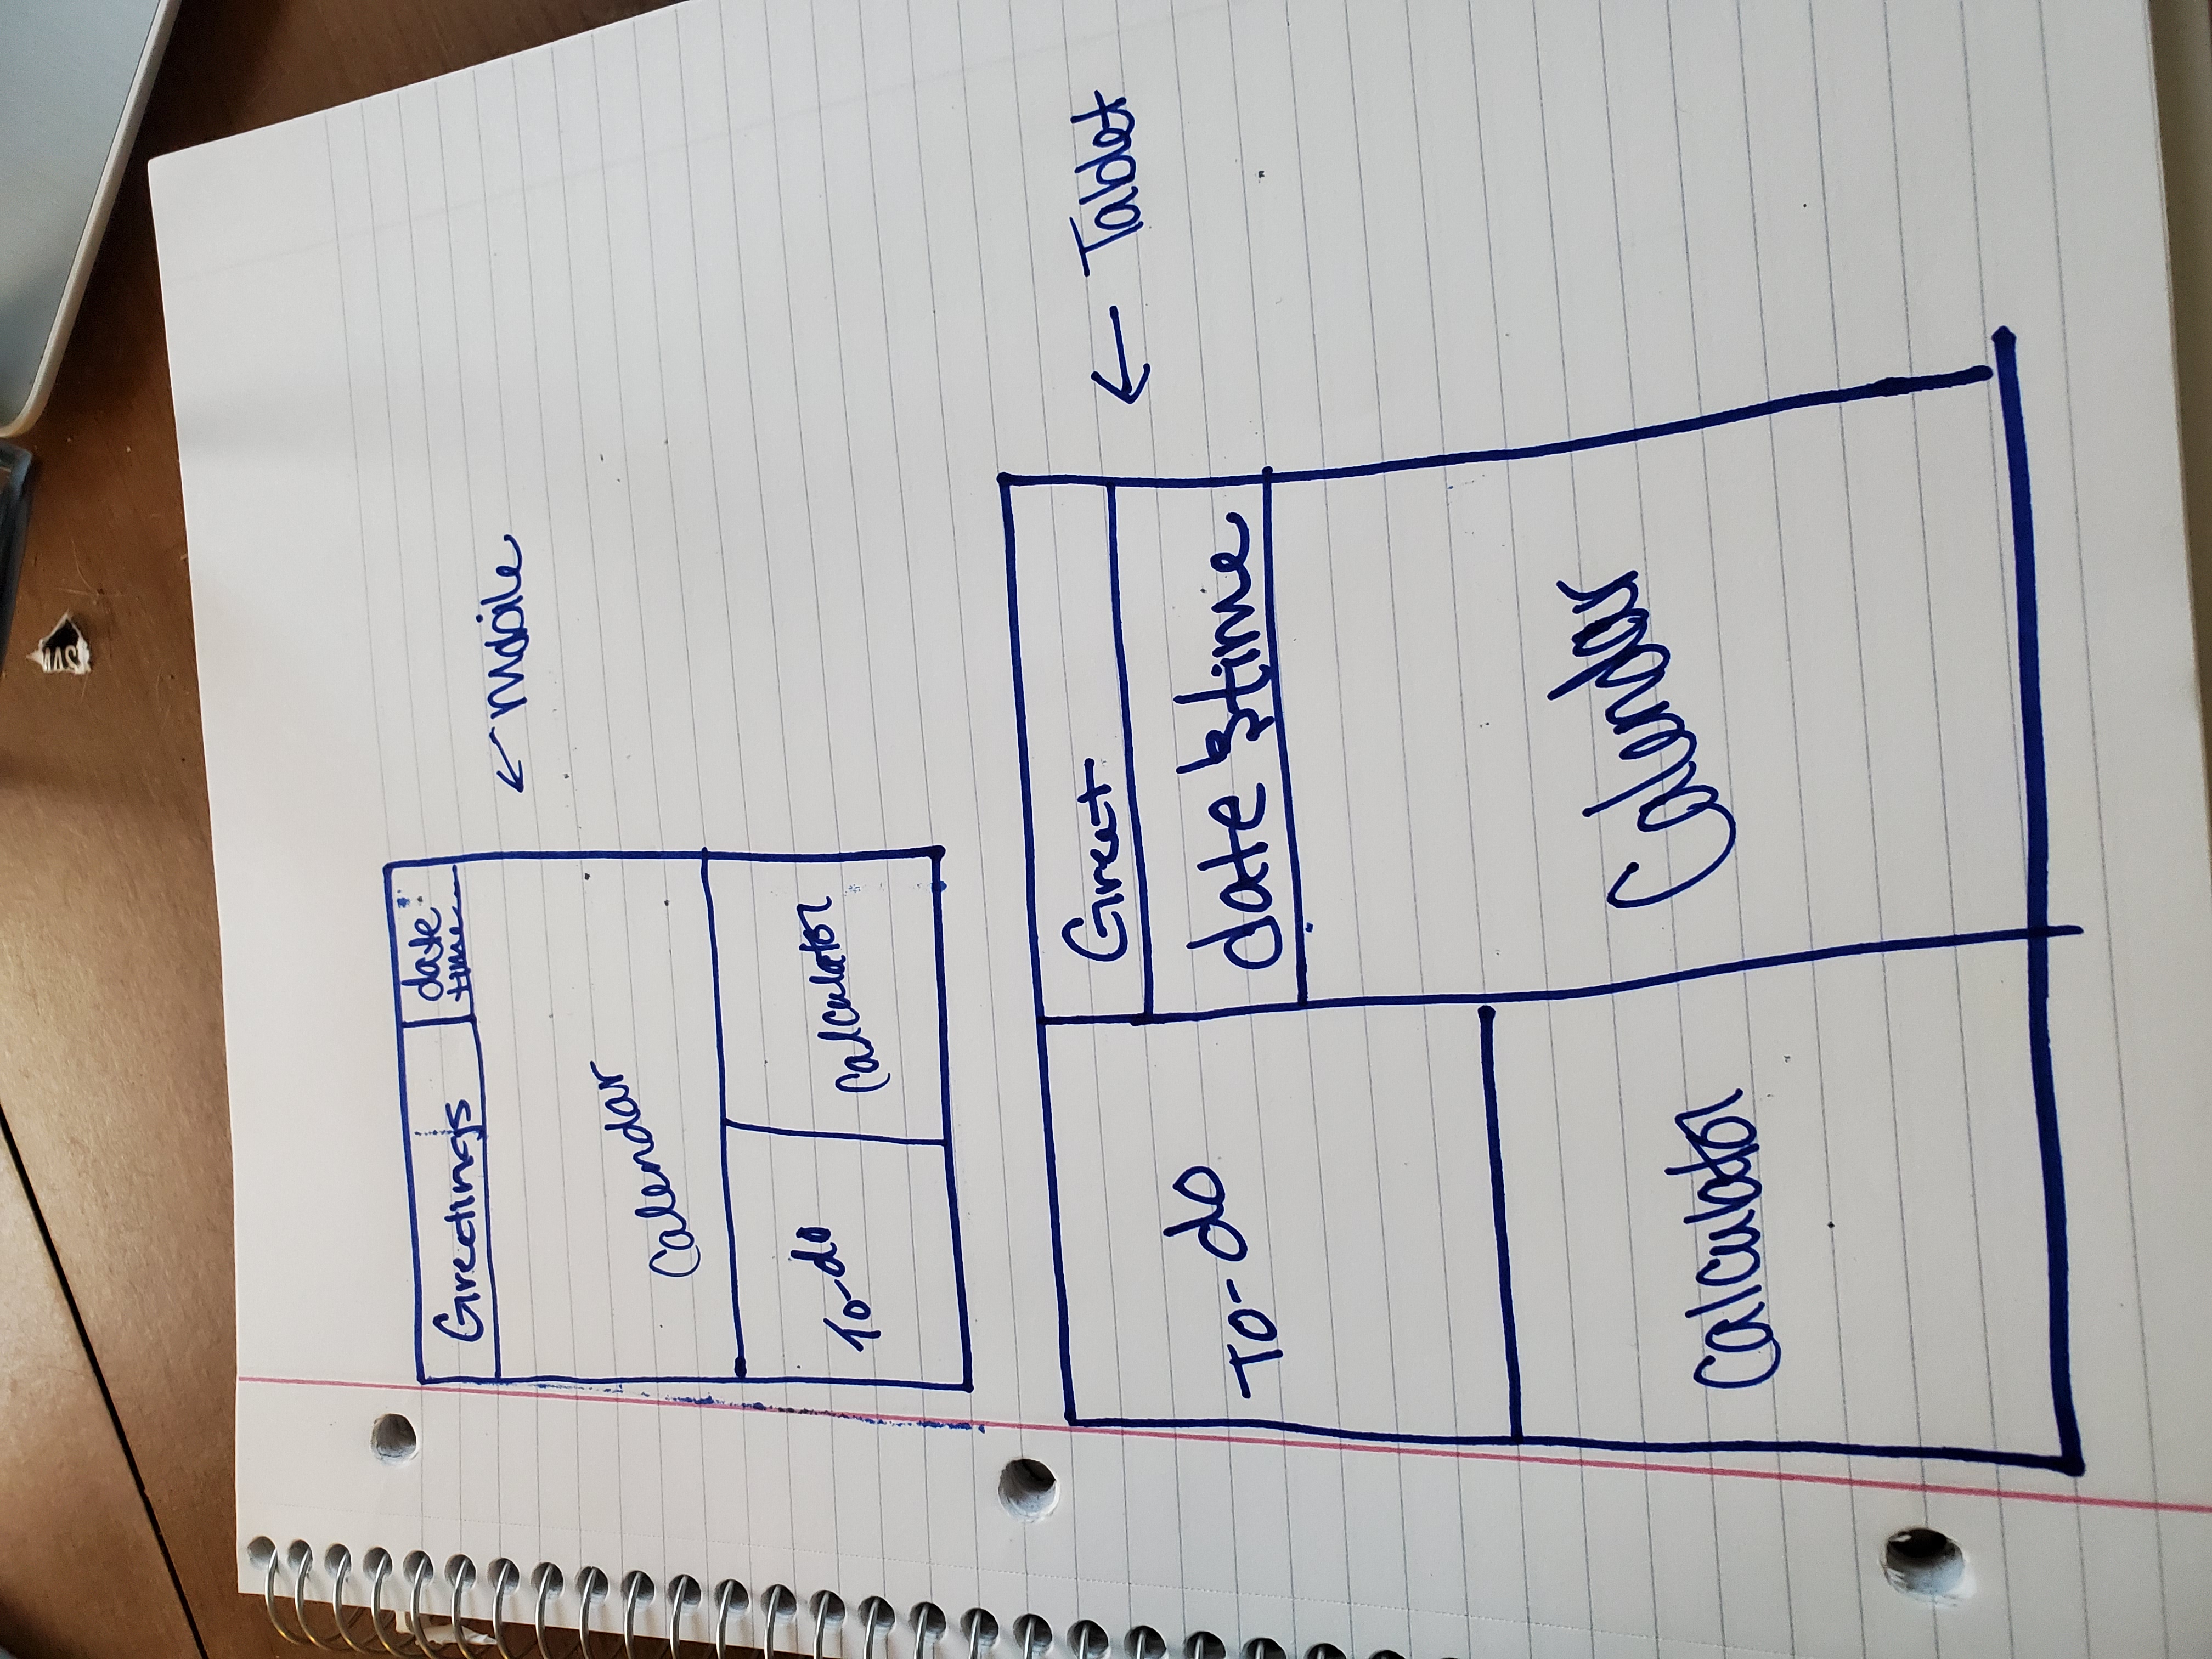 Greetings
date
time
← Mobile
Calendar
To-do
Calculator
Greet
← Tablet
To-do
date & time
Calendar
Calculator